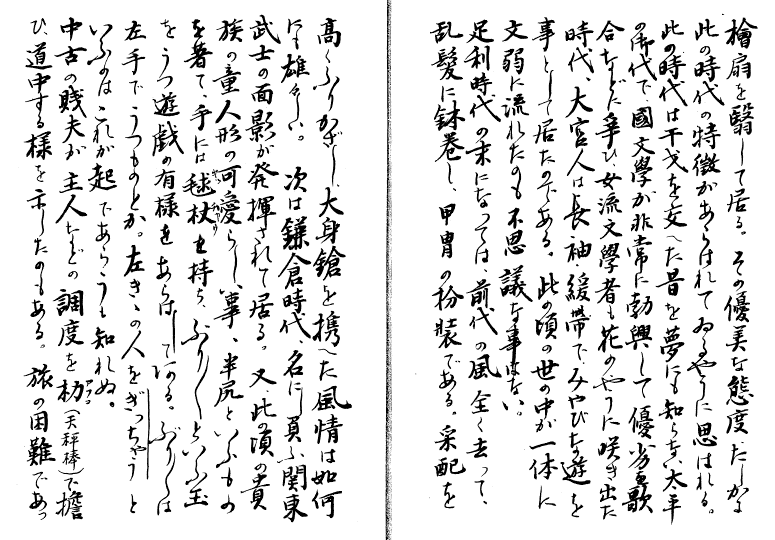 檜扇を翳して居る。その優美な態度、たしかに
此の時代の特徴があらはれてゐるやうに思はれる。
此の時代は干戈を交へた昔を夢にも知らない太平
の御代で、國文學が非常に勃興して優劣を歌
合などに爭ひ、女流文學者も花のやうに咲き出た
時代、大宮人は長袖緩帶でみやびな遊を
事として居たのである。此の頃の世の中が一体に
文弱に流れたのも不思議な事はない。
足利時代の末になつては、前代の風全く去つて、
乱髪に鉢巻し、甲冑の扮裝である。采配を
高くふりかざし、大身鎗を携へた風情は如何
にも雄々しい。次は鎌倉時代、名にし負ふ関東
武士の面影が発揮されて居る。又此の頃の貴
族の童人形の可愛らしい事、半尻といふもの
を着て、手には毬杖を持ち、ぶり〳〵といふ玉
をうつ遊戯の有樣をあらはしてゐる。ぶり〳〵は
左手でうつものとか。左きゝの人をぎつちやうと
いふのはこれが起であらうも知れぬ。
中古の賤夫が主人などの調度を朸(天秤棒)で擔
ひ、道中する樣を示したのもある。旅の困難であつ